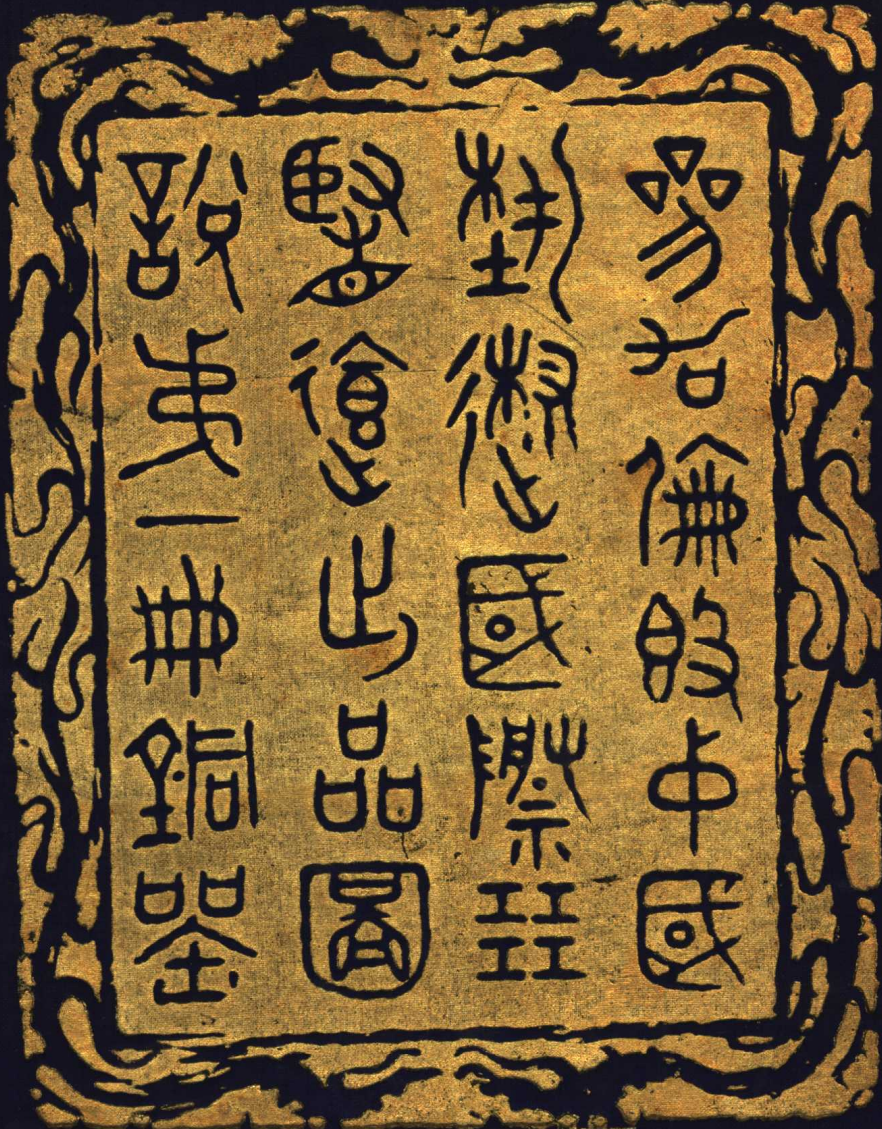 參加倫敦中國
藝術國際展
覽會出品圖
說第一冊銅器